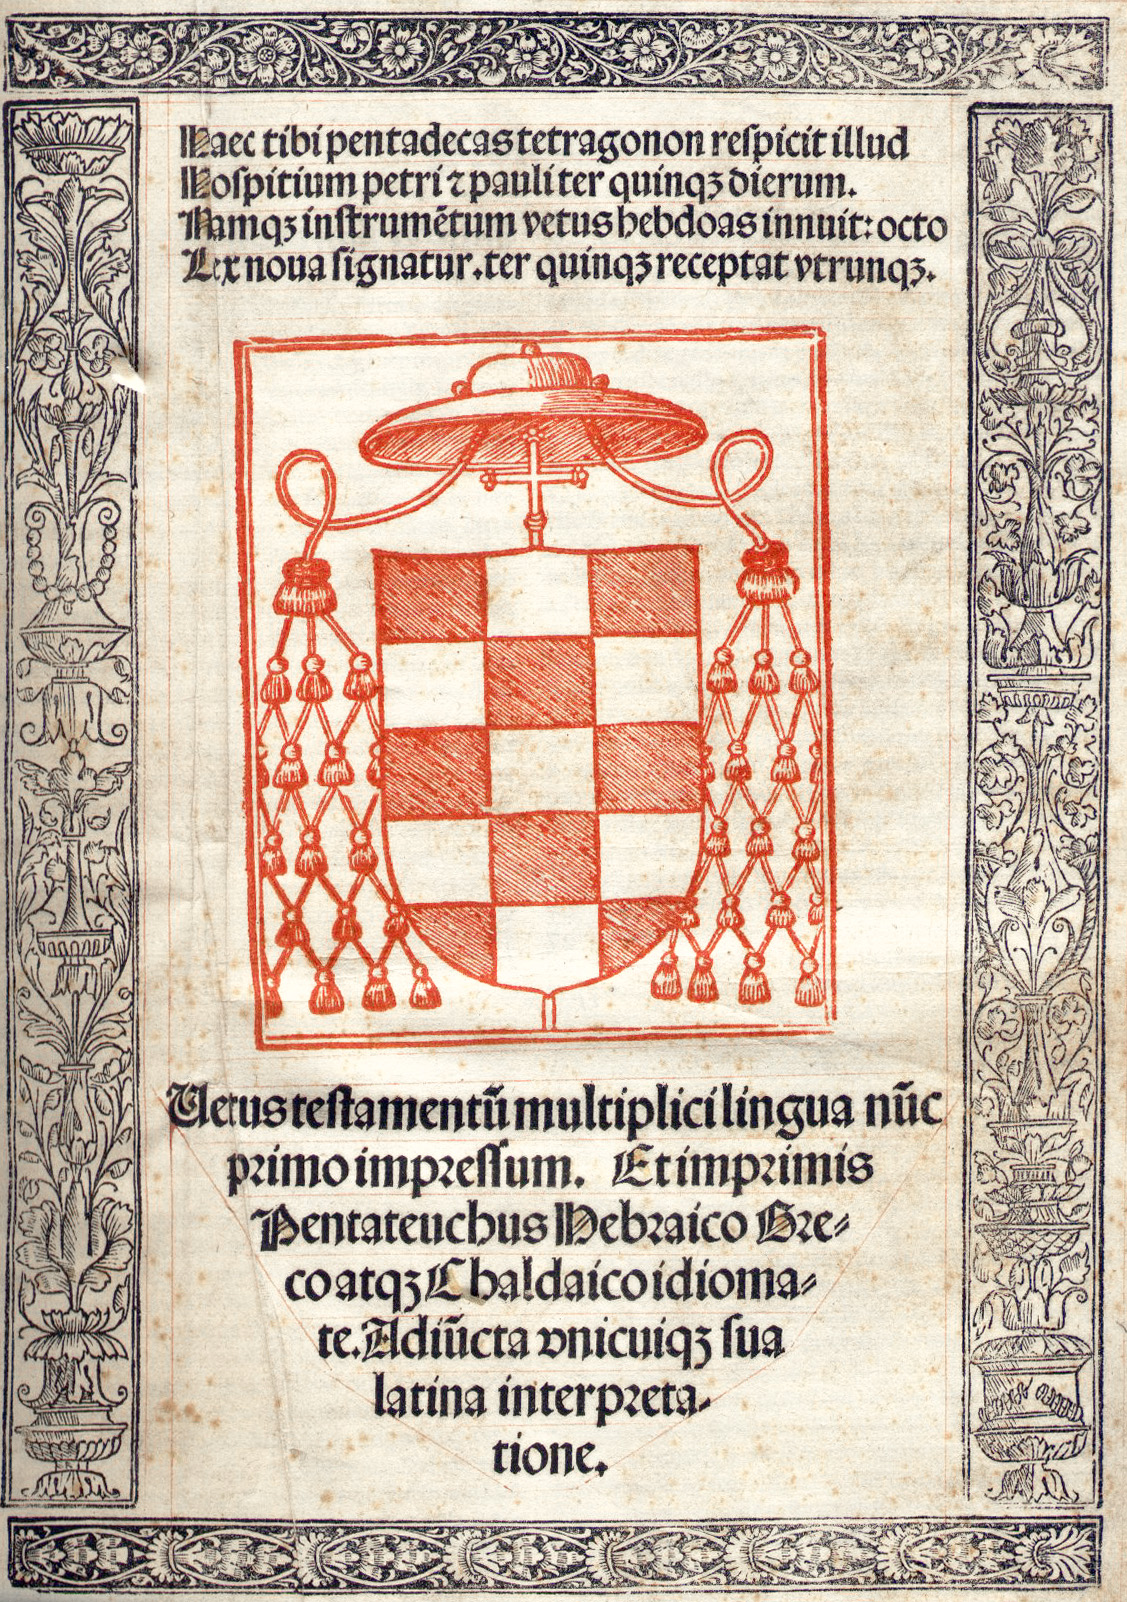 Haec tibi pentadecas tetragonon reſpicit illud
Hoſpitium petri ⁊ pauli ter quinqꝫ dierum.
Namqꝫ inſtrumẽtum vetus hebdoas innuit: octo
Lex noua ſignatur. ter quinqꝫ receptat vtrunqꝫ.
Uetus teſtamentũ multiplici lingua nũc
primo impreſſum. Et imprimis
Pentateuchus Hebraico Gre⸗
co atqꝫ Chaldaico idioma⸗
te. Adiũcta vnicuiqꝫ ſua
latina interpreta⸗
tione.